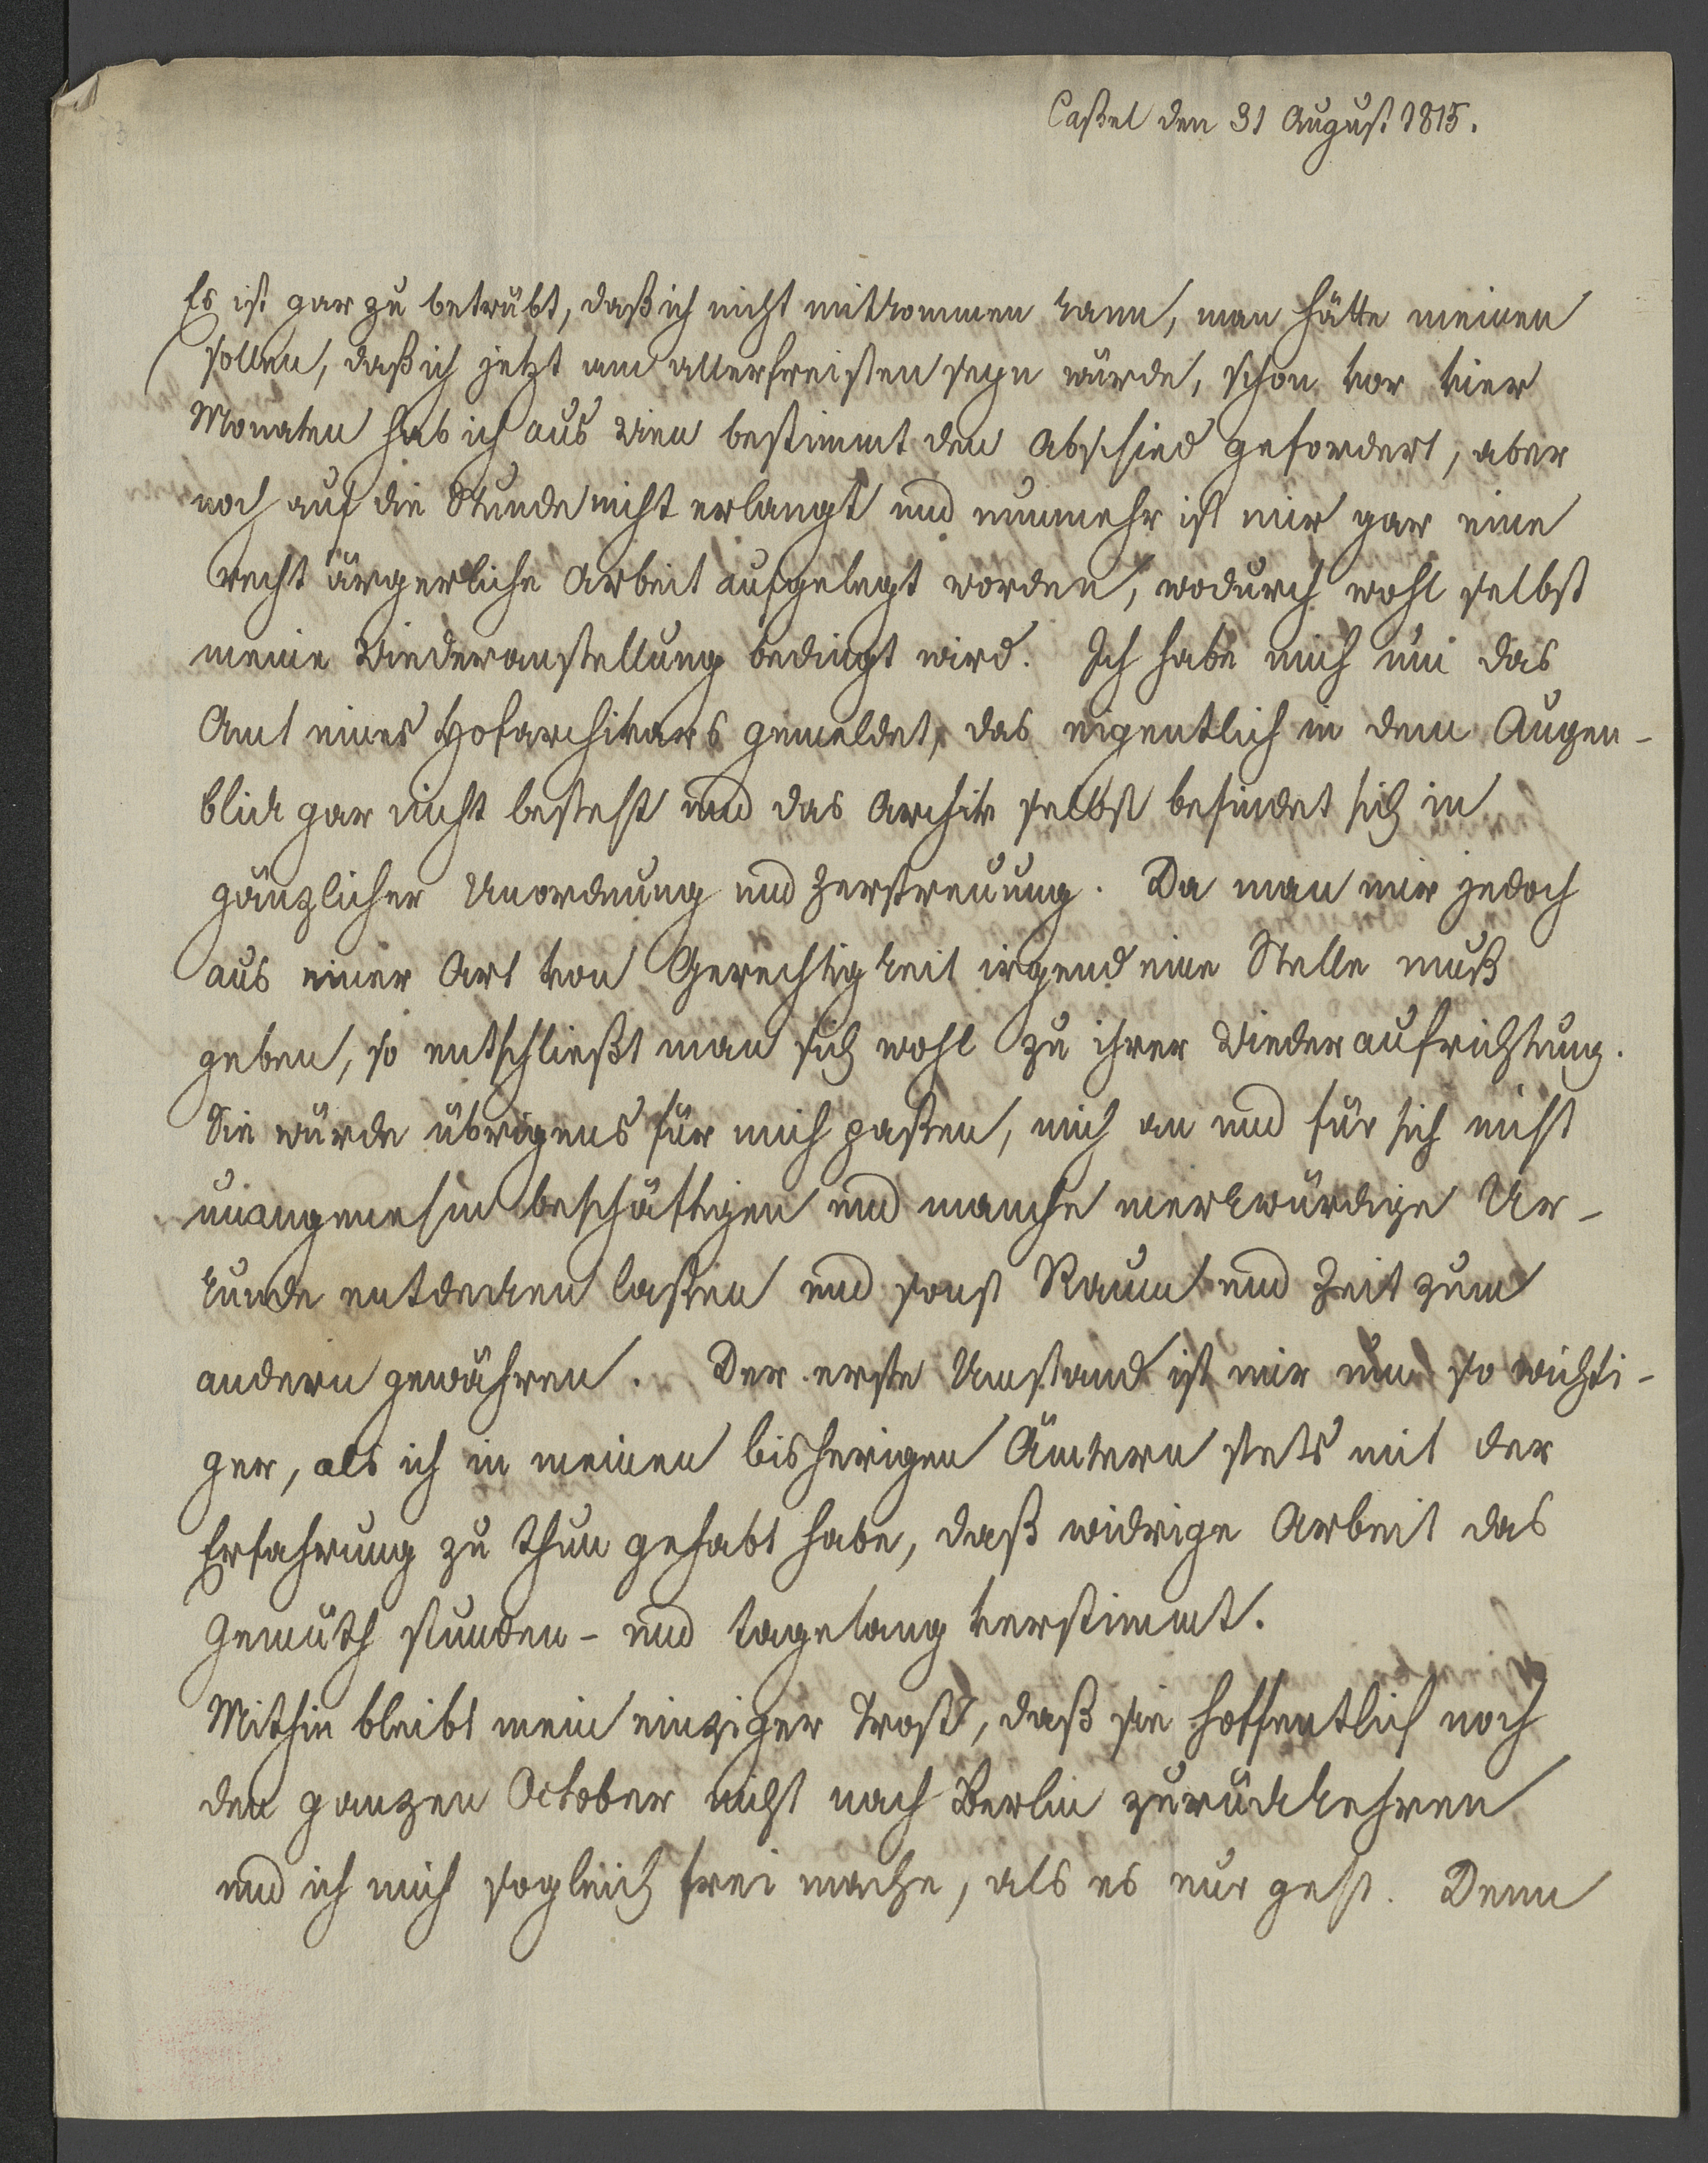 Caßel den 31 August 1815.
Es ist gar zu betrübt, daß ich nicht mitkommen kann, man hätte meinen
sollen, daß ich jetzt am allerfreisten seyn würde, schon vor vier
Monaten hab ich aus Wien bestimmt den Abschied gefordert, aber
noch auf die Stunde nicht erlangt und nunmehr ist mir gar eine
recht ärgerliche Arbeit aufgelegt worden, wodurch wohl selbst
meine Wiederanstellung bedingt wird. Ich habe mich um das
Amt eines Hofarchivars gemeldet, das eigentlich in dem Augen-
blick gar nicht besteht und das Archiv selbst befindet sich in
gänzlicher Unordnung und Zerstreuung. Da man mir jedoch
aus einer Art von Gerechtigkeit irgend eine Stelle muß
geben, so entschließt man sich wohl zu ihrer Wiederaufrichtung.
Sie würde übrigens für mich paßen, mich an und für sich nicht
unangenehm beschäftigen und manche merkwürdige Ur-
kunde entdecken laßen und sonst Raum und Zeit zum
andern gewähren. Der erste Umstand ist mir um so wichti-
ger, als ich in meinen bisherigen Ämtern stets mit der
Erfahrung zu thun gehabt habe, daß widrige Arbeit das
Gemüth stunden- und tagelang verstimmt.
Mithin bleibt mein einziger Trost, daß sie hoffentlich noch
den ganzen October nicht nach Berlin zurückkehren
und ich mich sogleich frei mache, als es nur geht. Denn